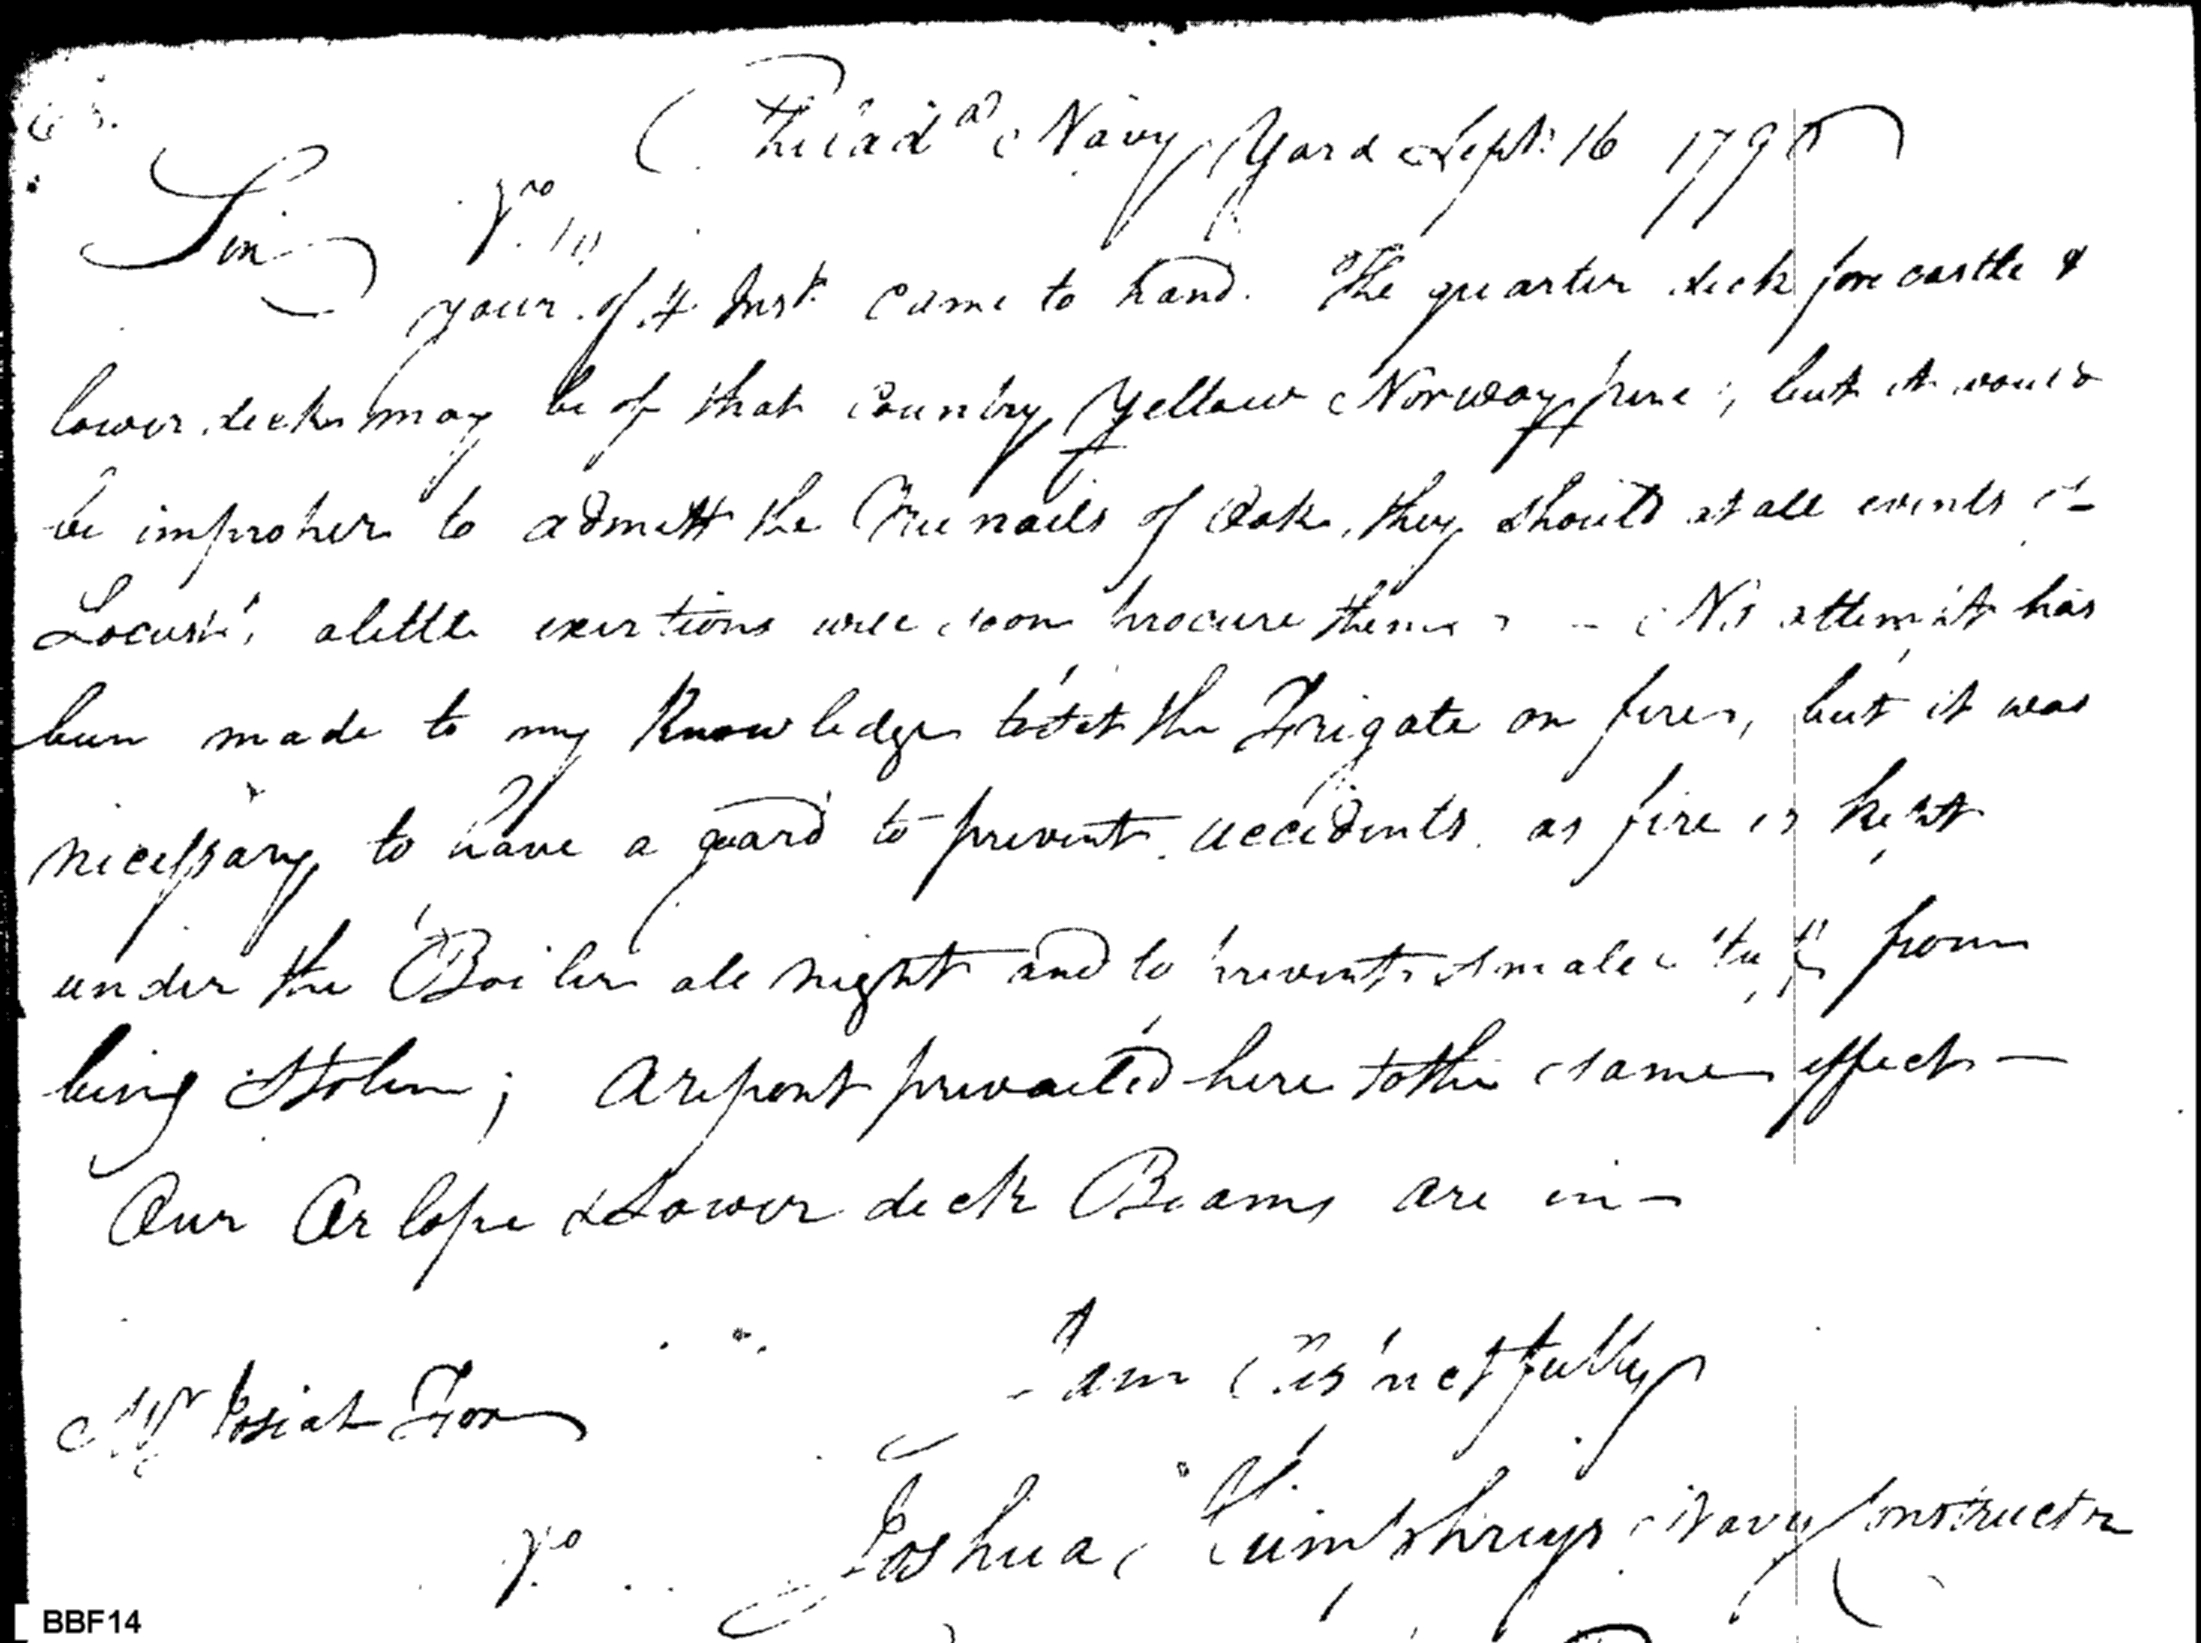 Philad.a Navy Yard Sept. 16 179
Sir
your of 4 Inst. came to hand. The quarter deck fore castle &
lower decks may be of that Country Yellow Norway pine, but it would
be improper to admitt the Tree nails of Oak, they should at all events
Locust, a little exertions will soon procure them - No attempt has
been made to my Knowledge to set the Frigate on fire, but it was
necessary to have a guard to prevent accidents. as fire is kept
under the Boiler all night and to prevent small stuff from
being Stolen; A report prevailed here to the same effect —
Our Orlope & Lower deck Beams are in -
I am Respectfully
Mr Josiah Fox
Joshua Humphreys Navy Constructr
BBF14